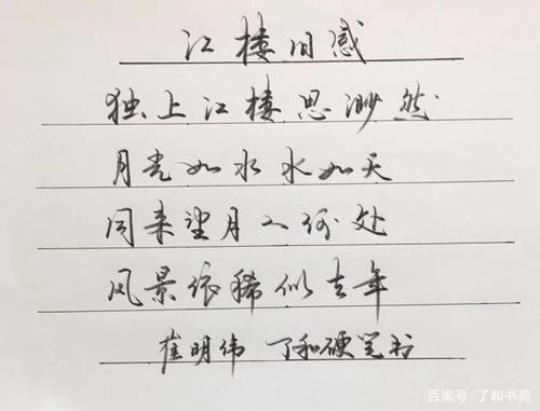 江楼旧感
独上江楼思渺然
月光如水水如天
同来望月人何处
风景依稀似去年
崔明伟 了和硬笔书
百家号/了和书苑